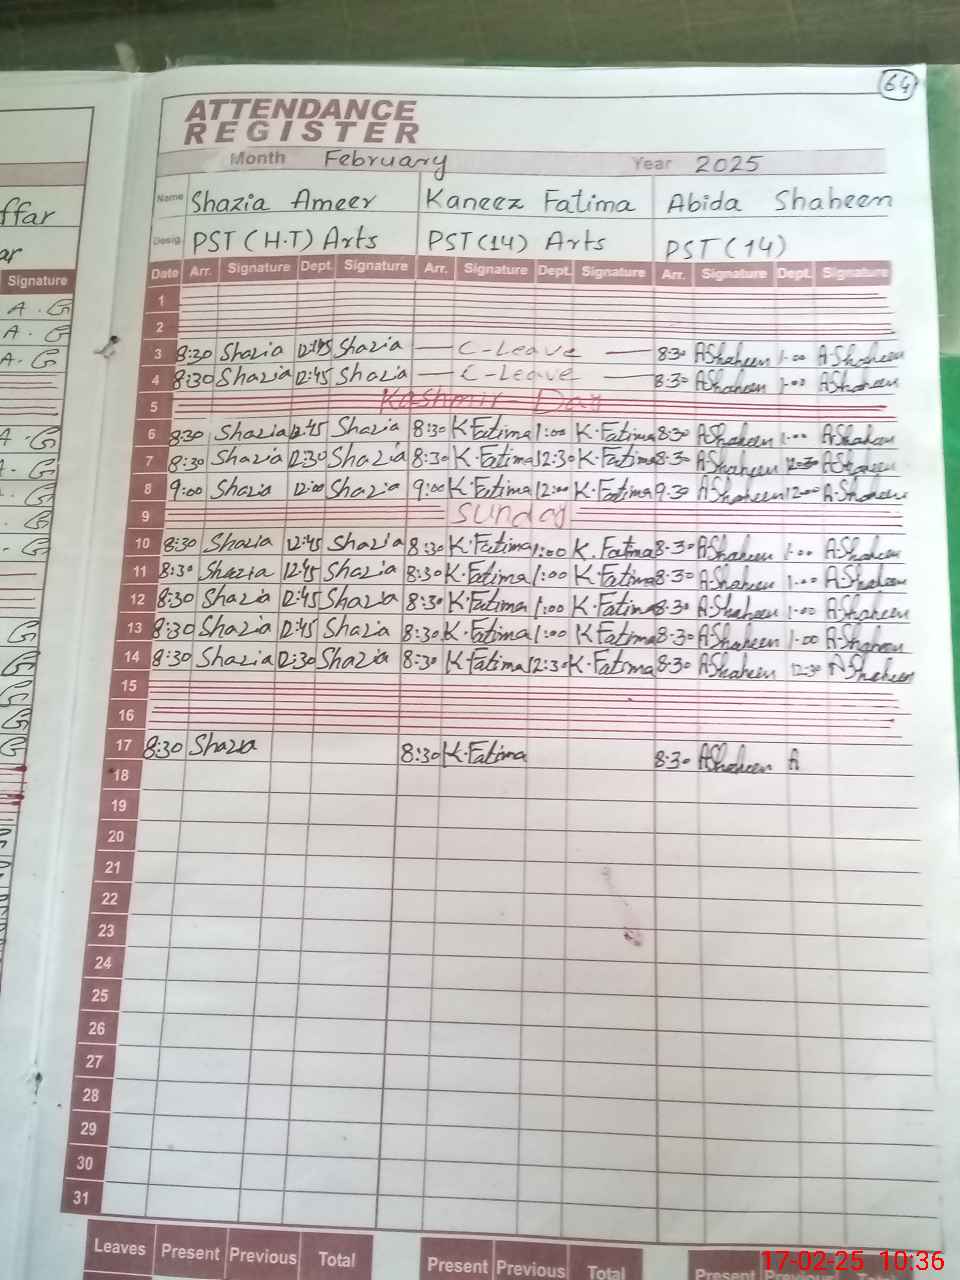 64
ATTENDANCE
REGISTER
Month February Year 2025
ffar Name Shazia Ameer Kaneez Fatima Abida Shaheen
ar Desig. PST (H.T) Arts PST(14) Arts PST (14)
Signature Date Arr. Signature Dept. Signature Arr. Signature Dept. Signature Arr. Signature Dept. Signature
A. G 1
A. G 2
A. G 3 8:30 Shazia 12:45 Shazia — C-Leave — 8:30 AShaheen 1:00 A.Shaheen
4 8:30 Shazia 12:45 Shazia — C-Leave — 8:30 AShaheen 1:00 AShaheen
5 Kashmir Day
A. G 6 8:30 Shazia 12:45 Shazia 8:30 K Fatima 1:00 K.Fatima 8:30 AShaheen 1:00 AShaheen
G 7 8:30 Shazia 12:30 Shazia 8:30 K.Fatima 12:30 K.Fatima 8:30 AShaheen 12:30 AShaheen
G 8 9:00 Shazia 12:00 Shazia 9:00 K.Fatima 12:00 K.Fatima 9:30 AShaheen 12:00 A.Shaheen
G 9 Sunday
G 10 8:30 Shazia 12:45 Shazia 8:30 K.Fatima 1:00 K.Fatima 8:30 AShaheen 1:00 AShaheen
11 8:30 Shazia 12:45 Shazia 8:30 K.Fatima 1:00 K.Fatima 8:30 A.Shaheen 1:00 A.Shaheen
12 8:30 Shazia 12:45 Shazia 8:30 K.Fatima 1:00 K.Fatima 8:30 A.Shaheen 1:00 AShaheen
G 13 8:30 Shazia 12:45 Shazia 8:30 K.Fatima 1:00 K Fatima 8:30 AShaheen 1:00 AShaheen
G 14 8:30 Shazia 12:30 Shazia 8:30 K Fatima 12:30 K.Fatima 8:30 AShaheen 12:30 A Shaheen
G 15
G 16
G 17 8:30 Shazia 8:30 K.Fatima 8:30 AShaheen A
18
19
20
21
22
23
24
25
26
27
28
29
30
31
Leaves Present Previous Total Present Previous Total Present Previous Total
17-02-25 10:36